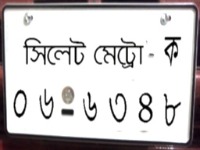 সিলেট মেট্রো - ক
০৬-৬৩৪৮